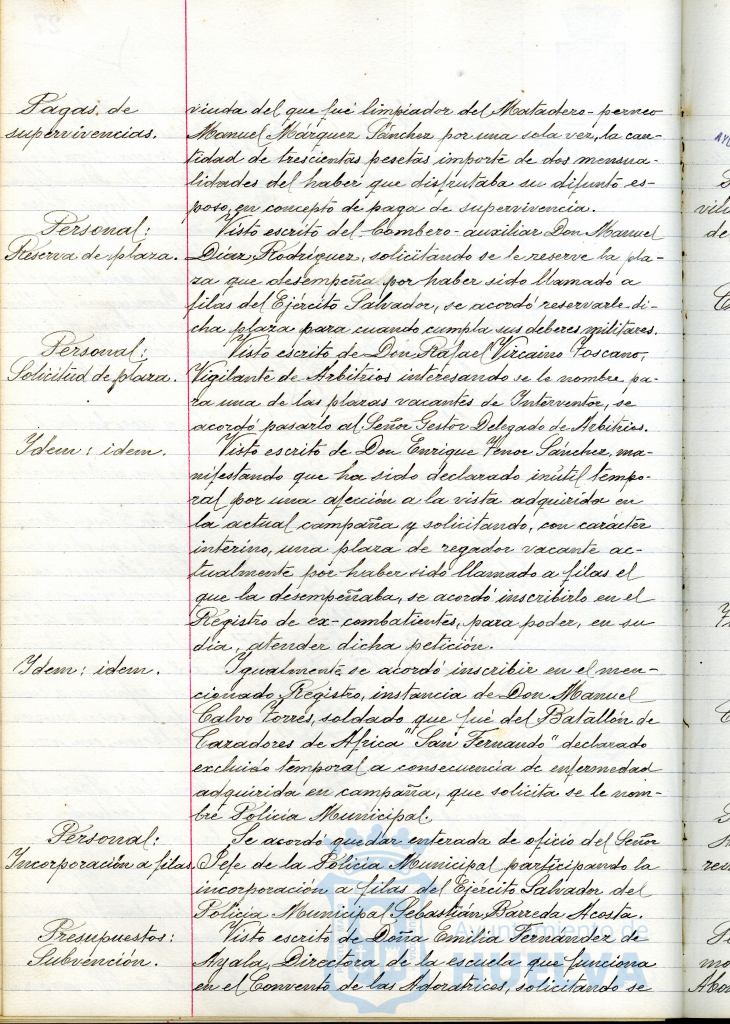 Pagas de
supervivencias.
viuda del que fué limpiador del Matadero-perneo
Manuel Márquez Sánchez por una sola vez, la can-
tidad de trescientas pesetas importe de dos mensua-
lidades del haber que disfrutaba su difunto es-
poso, en concepto de paga de supervivencia.
Personal:
Reserva de plaza.
Visto escrito del bombero-auxiliar Don Manuel
Díaz Rodríguez, solicitando se le reserve la pla-
za que desempeña por haber sido llamado a
filas del Ejército Salvador, se acordó reservarle di-
cha plaza para cuando cumpla sus deberes militares.
Personal:
Solicitud de plaza.
Visto escrito de Don Rafael Vizcaino Toscano,
Vigilante de Arbitrios interesando se le nombre pa-
ra una de las plazas vacantes de Interventor, se
acordó pasarlo al Señor Gestor Delegado de Arbitrios.
Idem: idem.
Visto escrito de Don Enrique Tenor Sánchez, ma-
nifestando que ha sido declarado inútil tempo-
ral por una afección a la vista adquirida en
la actual campaña y solicitando, con carácter
interino, una plaza de regador vacante ac-
tualmente por haber sido llamado a filas el
que la desempeñaba, se acordó inscribirlo en el
Registro de ex-combatientes, para poder, en su
dia, atender dicha petición.
Idem: idem.
Igualmente se acordó inscribir en el men-
cionado Registro, instancia de Don Manuel
Calvo Torres, soldado que fué del Batallón de
Cazadores de Africa "San Fernando" declarado
excluido temporal a consecuencia de enfermedad
adquirida en campaña, que solicita se le nom-
bre Policía Municipal.
Personal:
Incorporación a filas.
Se acordó quedar enterada de oficio del Señor
Jefe de la Policía Municipal participando la
incorporación a filas del Ejército Salvador del
Policía Municipal Sebastián Barreda Acosta.
Presupuestos:
Subvención.
Visto escrito de Doña Emilia Fernández de
Ayala, Directora de la escuela que funciona
en el Convento de las Adoratrices, solicitando se
Ayuntamiento de
HUELVA